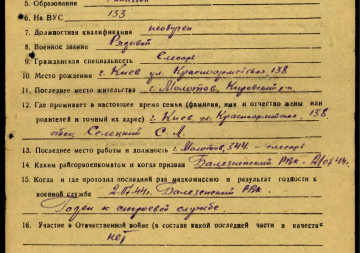 5. Образование
6. На ВУС 133
7. Должностная квалификация необучен
8. Военное звание Рядовой
9. Гражданская специальность Слесарь
10. Место рождения г. Киев ул. Красноармейская, 138
11. Последнее место жительства г. Молотов, Кировский р-н
12. Где проживает в настоящее время семья (фамилия, имя и отчество жены или
родителей и точный их адрес) г. Киев ул. Красноармейская, 138
отец С. А.
13. Последнее место работы и должность г. Молотов, 344 - слесарь
14. Каким райгорвоенкоматом и когда призван Балезинский РВК
15. Когда и где проходил последний раз медкомиссию и результат годности к
военной службе 2.07.44г. Балезинский РВК.
Годен к строевой службе
16. Участие в Отечественной войне (в составе какой последней части в качестве
нет